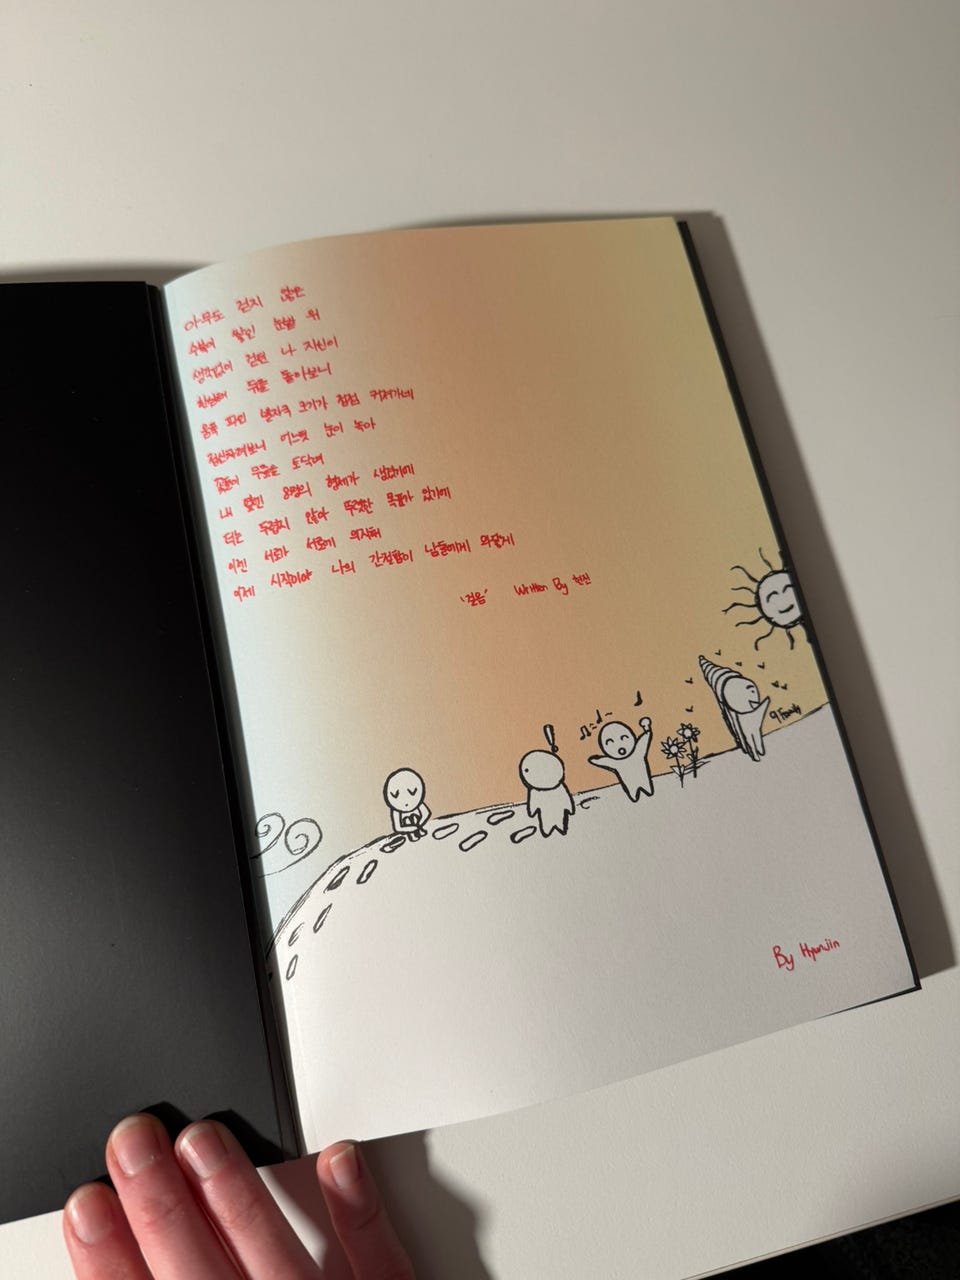 아무도 걷지 않은
수북이 쌓인 눈밭 위
생각없이 걷던 나 자신이
한심해 뒤를 돌아보니
움푹 파인 발자국 크기가 점점 커져가네
정신차려보니 어느덧 눈이 녹아
꽃들이 무릎을 토닥여
내 옆엔 8명의 형제가 생겼기에
더는 두렵지 않아 뚜렷한 목표가 있기에
이젠 서로가 서로에 의지해
이제 시작이야 나의 간절함이 남들에게 와닿게
'걸음' Written By 현진
9 Family
By Hyunjin